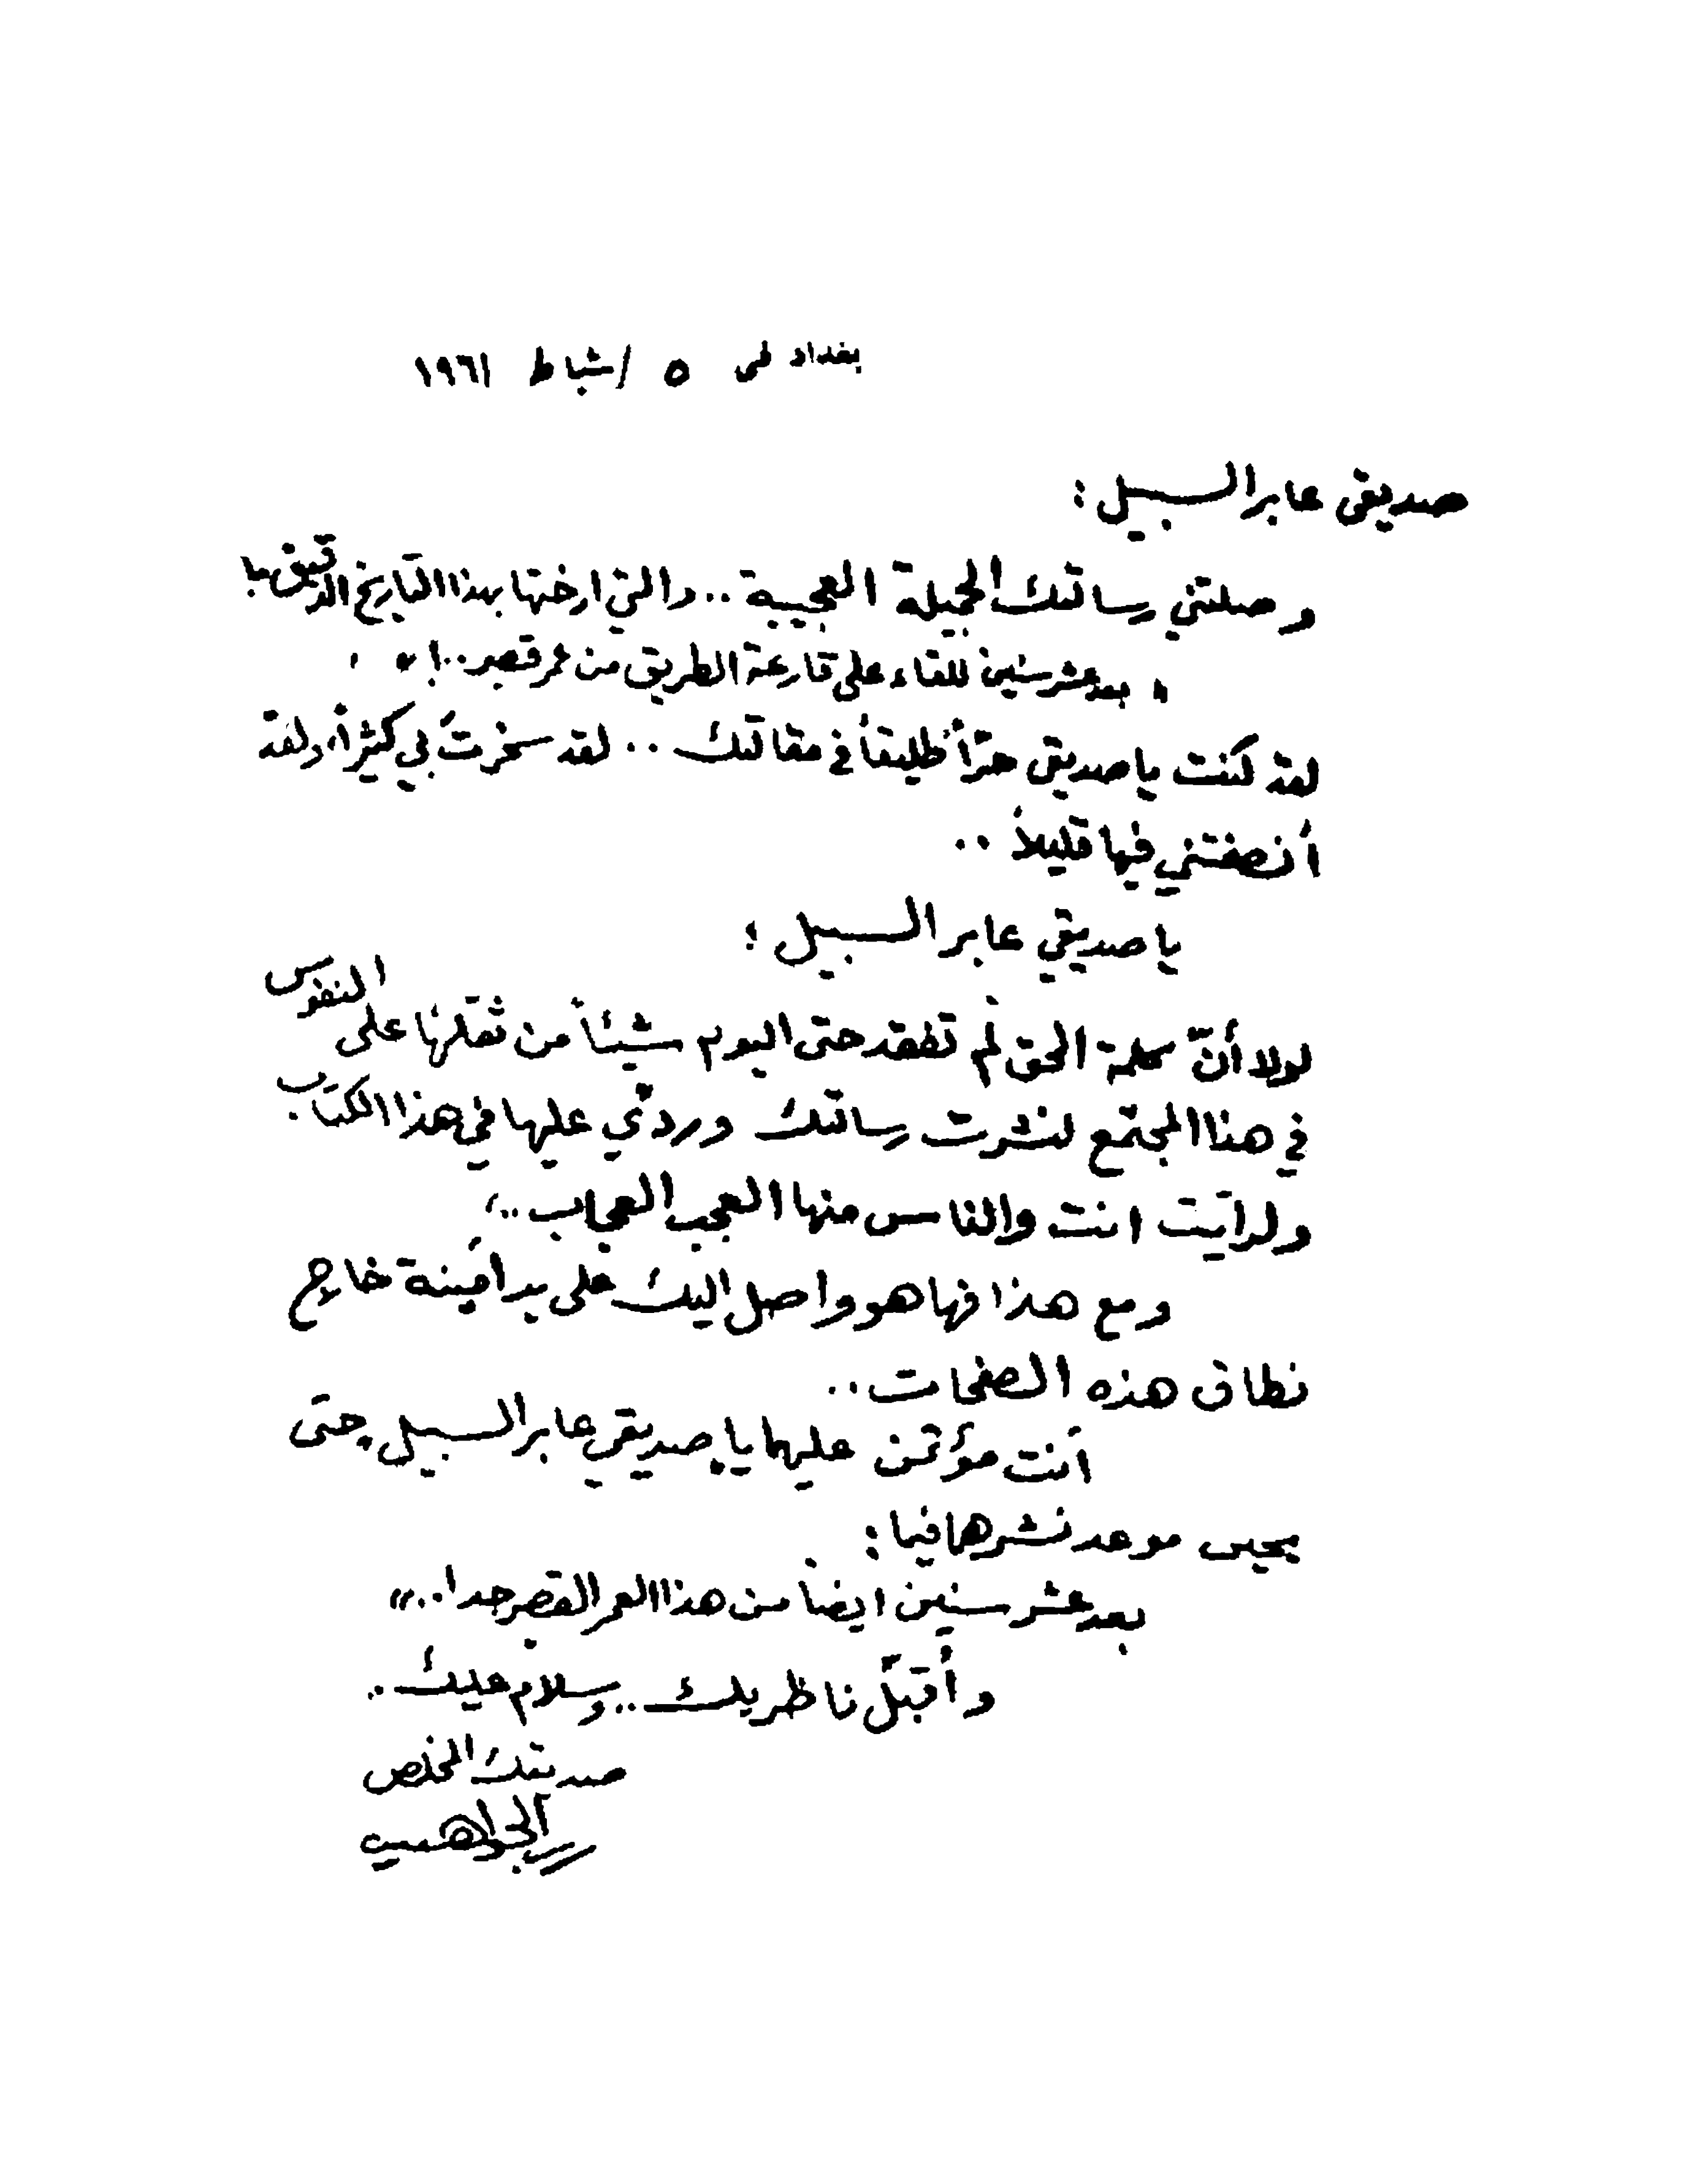 بغداد في ٥ / شباط ١٩٦١
صديقي عابر السبيل :
وصلتني رسالتك الجميلة العجيبة .. والتي ارختها بهذا التاريخ الدقيق بـ
" بعد عشر سنين للقاء على قارعة الطريق من عمر قصير .. ! " ،
لقد كنت يا صديقي حرّاً طليقاً في مقالتك .. لقد سخرتَ بي كثيراً، ولقد
أنصفتني فيها قليلاً ..
يا صديقي عابر السبيل ؛
لولا أنّ كلمة الحق لم تفقد حتى اليوم شيئاً من ثقلها على النفوس
في هذا المجتمع لنشرت رسالتك وردّي عليها في هذا الكتاب
ولرأيت انت والناس منها العجب العجاب ..،
ومع هذا فها هو واصل اليك على يد أمينة خارج
نطاق هذه الصفحات ..
أنت مؤتمن عليهما يا صديقي عابر السبيل حتى
يحين موعد نشرهما فيما :
بعد عشر سنين ايضاً من هذا العمر القصير جدا .. "
وأقبّل ناظريك .. وسلام عليك ..
صديقك المخلص
الجواهري